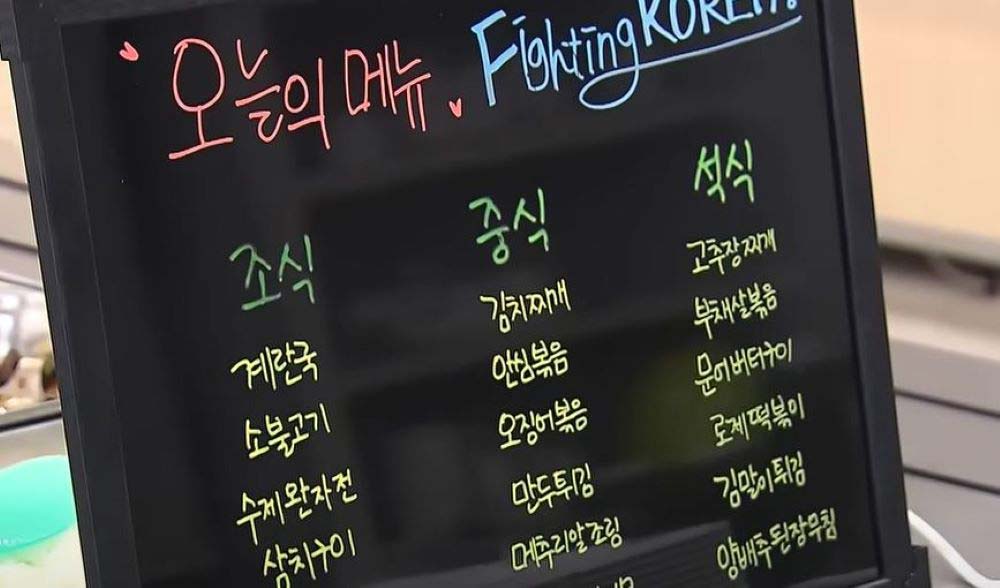 오늘의 메뉴
Fighting KOREA!
조식
계란국
소불고기
수제완자전
삼치구이
중식
김치찌개
안심볶음
오징어볶음
만두튀김
메추리알조림
석식
고추장찌개
부채살볶음
문어버터구이
로제떡볶이
김말이튀김
양배추된장무침